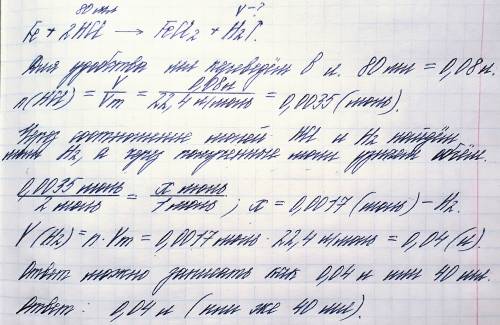 80 мл V-?
Fe + 2HCl → FeCl₂ + H₂↑.
Для удобства мл переведём в л. 80 мл = 0,08л.
n(HCl) = V/Vm = 0,08л/22,4 л/моль = 0,0035 (моль).
Через соотношение молей HCl и H₂ найдём
моли H₂, а через полученные моли узнаем объём.
0,0035 моль/2 моль = x моль/1 моль; x = 0,0017 (моль) - H₂.
V(H₂) = n · Vm = 0,0017 моль · 22,4 л/моль = 0,04 (л).
Ответ можно записать как 0,04 л или 40 мл.
Ответ: 0,04 л (или же 40 мл).